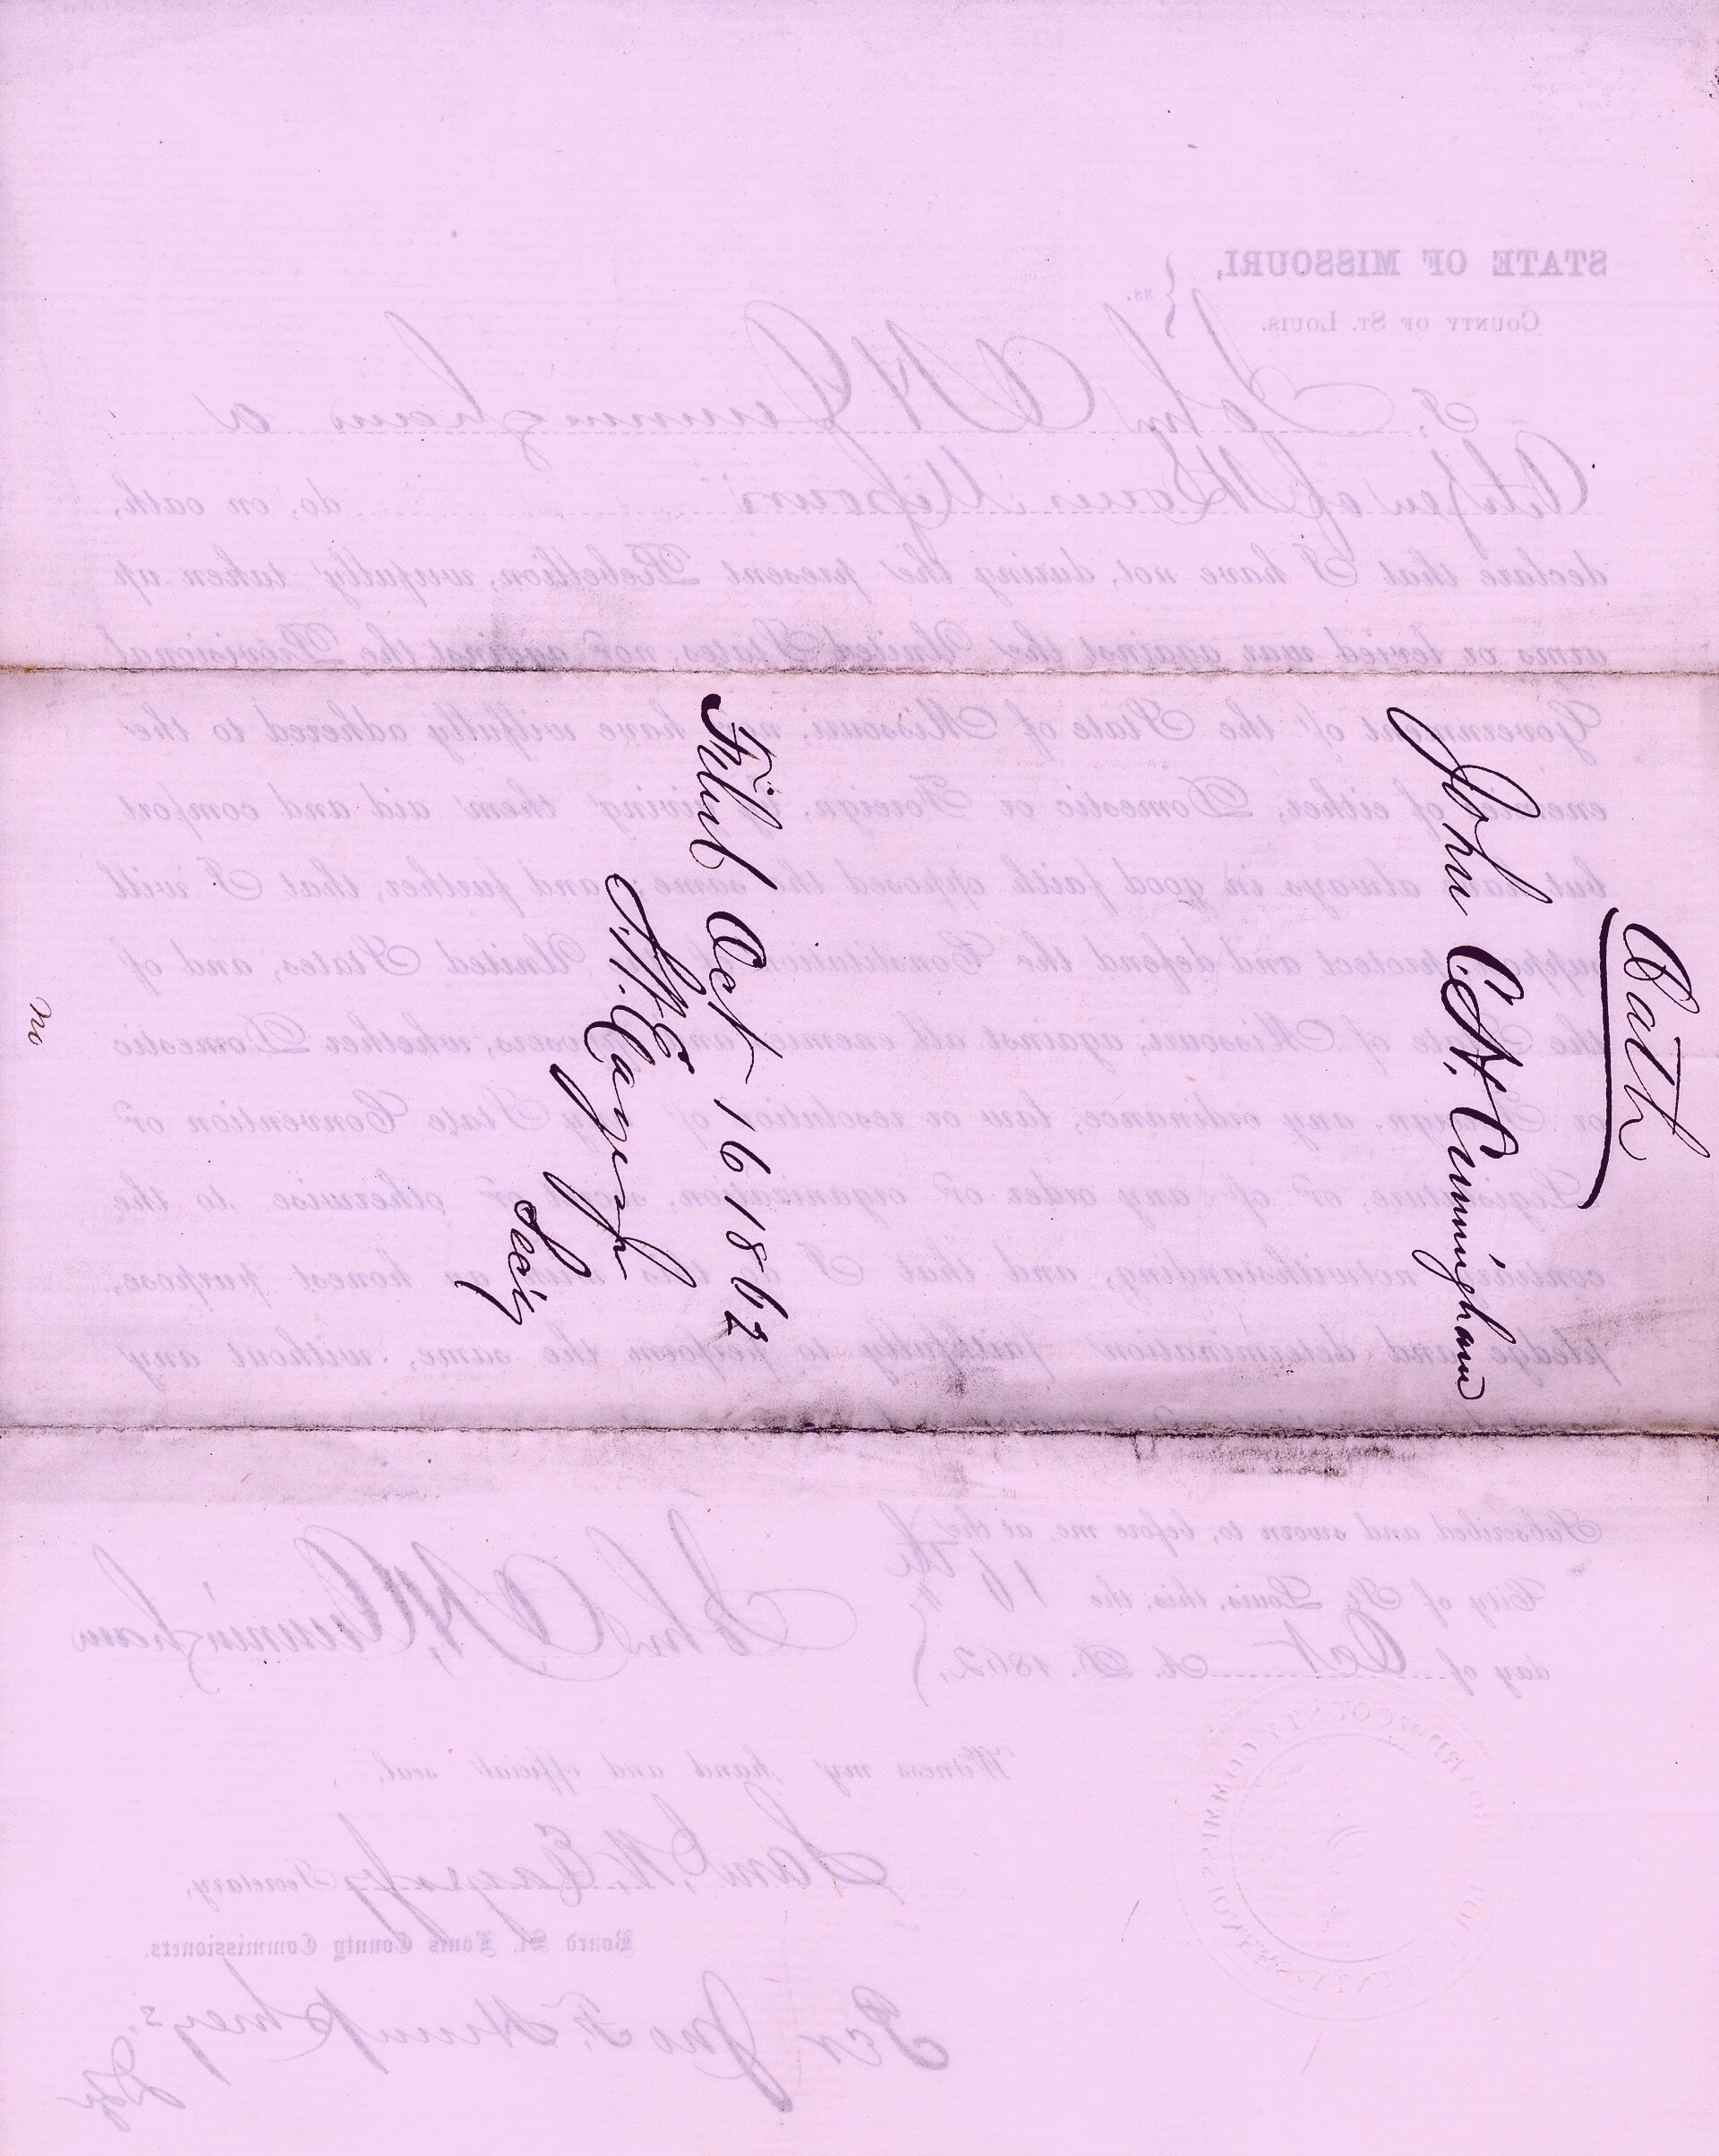 Oath
John C. H. Cunningham
Filed Oct 16 1862
Sec'y
mo
STATE OF MISSOURI,
COUNTY OF ST. LOUIS. } ss.
I, John C H Cunningham a
Citizen of St Louis Missouri do, on oath,
declare that I have not, during the present Rebellion, wilfully taken up
arms or levied war against the United States, nor against the Provisional
Government of the State of Missouri, nor have wilfully adhered to the
enemies of either, Domestic or Foreign, by giving them aid and comfort
but have always in good faith opposed the same; and further, that I will
support, protect and defend the Constitution of the United States, and of
the State of Missouri, against all enemies and opposers, whether Domestic
or Foreign, any ordinance, law or resolution of any State Convention or
Legislature, or of any order or organization, secret or otherwise to the
contrary notwithstanding, and that I do this with an honest purpose,
pledge and determination faithfully to perform the same, without any
Subscribed and sworn to, before me, at the
City of St. Louis, this, the 16th
day of Oct A. D. 1862,
John C H, Cunningham
Witness my hand and official seal,
Secretary,
Board St. Louis County Commissioners.
Per Jno F. Humphreys,
Dpy